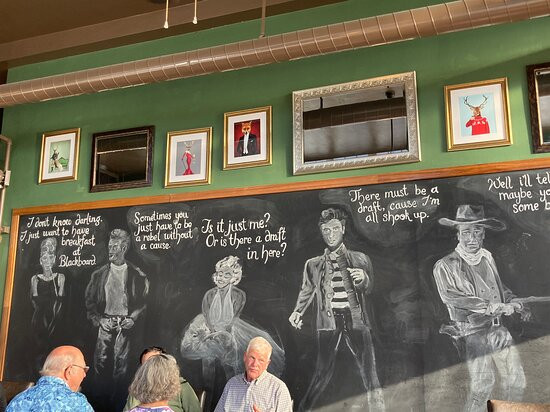 I don't know darling,
I just want to have
breakfast
at
Blackboard.
Sometimes you
just have to be
a rebel without
a cause.
Is it just me?
Or is there a draft
in here?
There must be a
draft, cause I'm
all shook up.
Well i'll tell
maybe you
some b